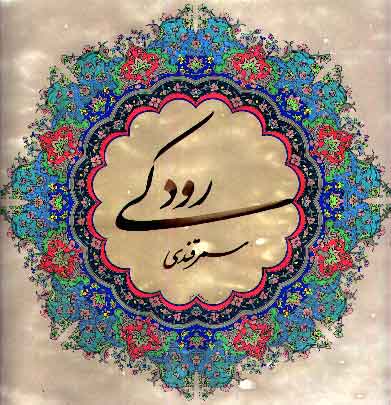 رودکی
سمرقندی